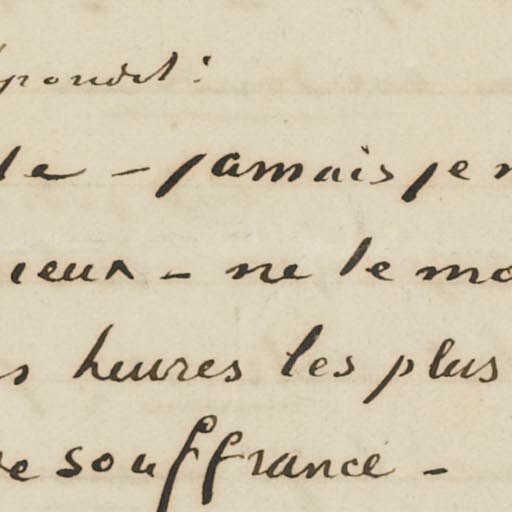 pondit:
le - jamais je n
ieux - ne le mo
s heures les plus
re souffrance -